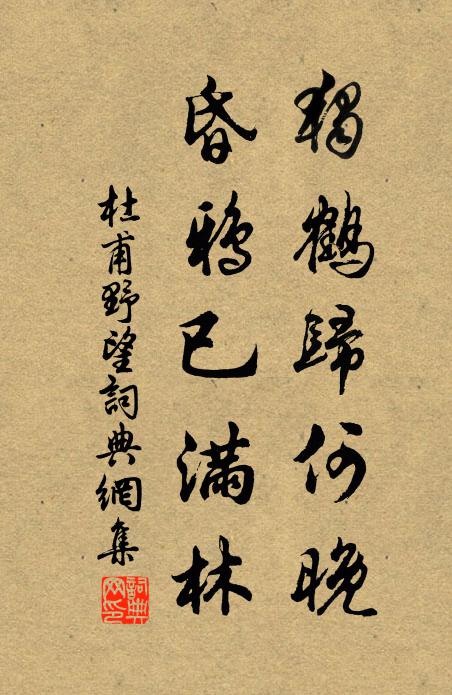 獨鶴歸何晚
昏鴉已滿林
杜甫野望詞典網集
詞典
网印